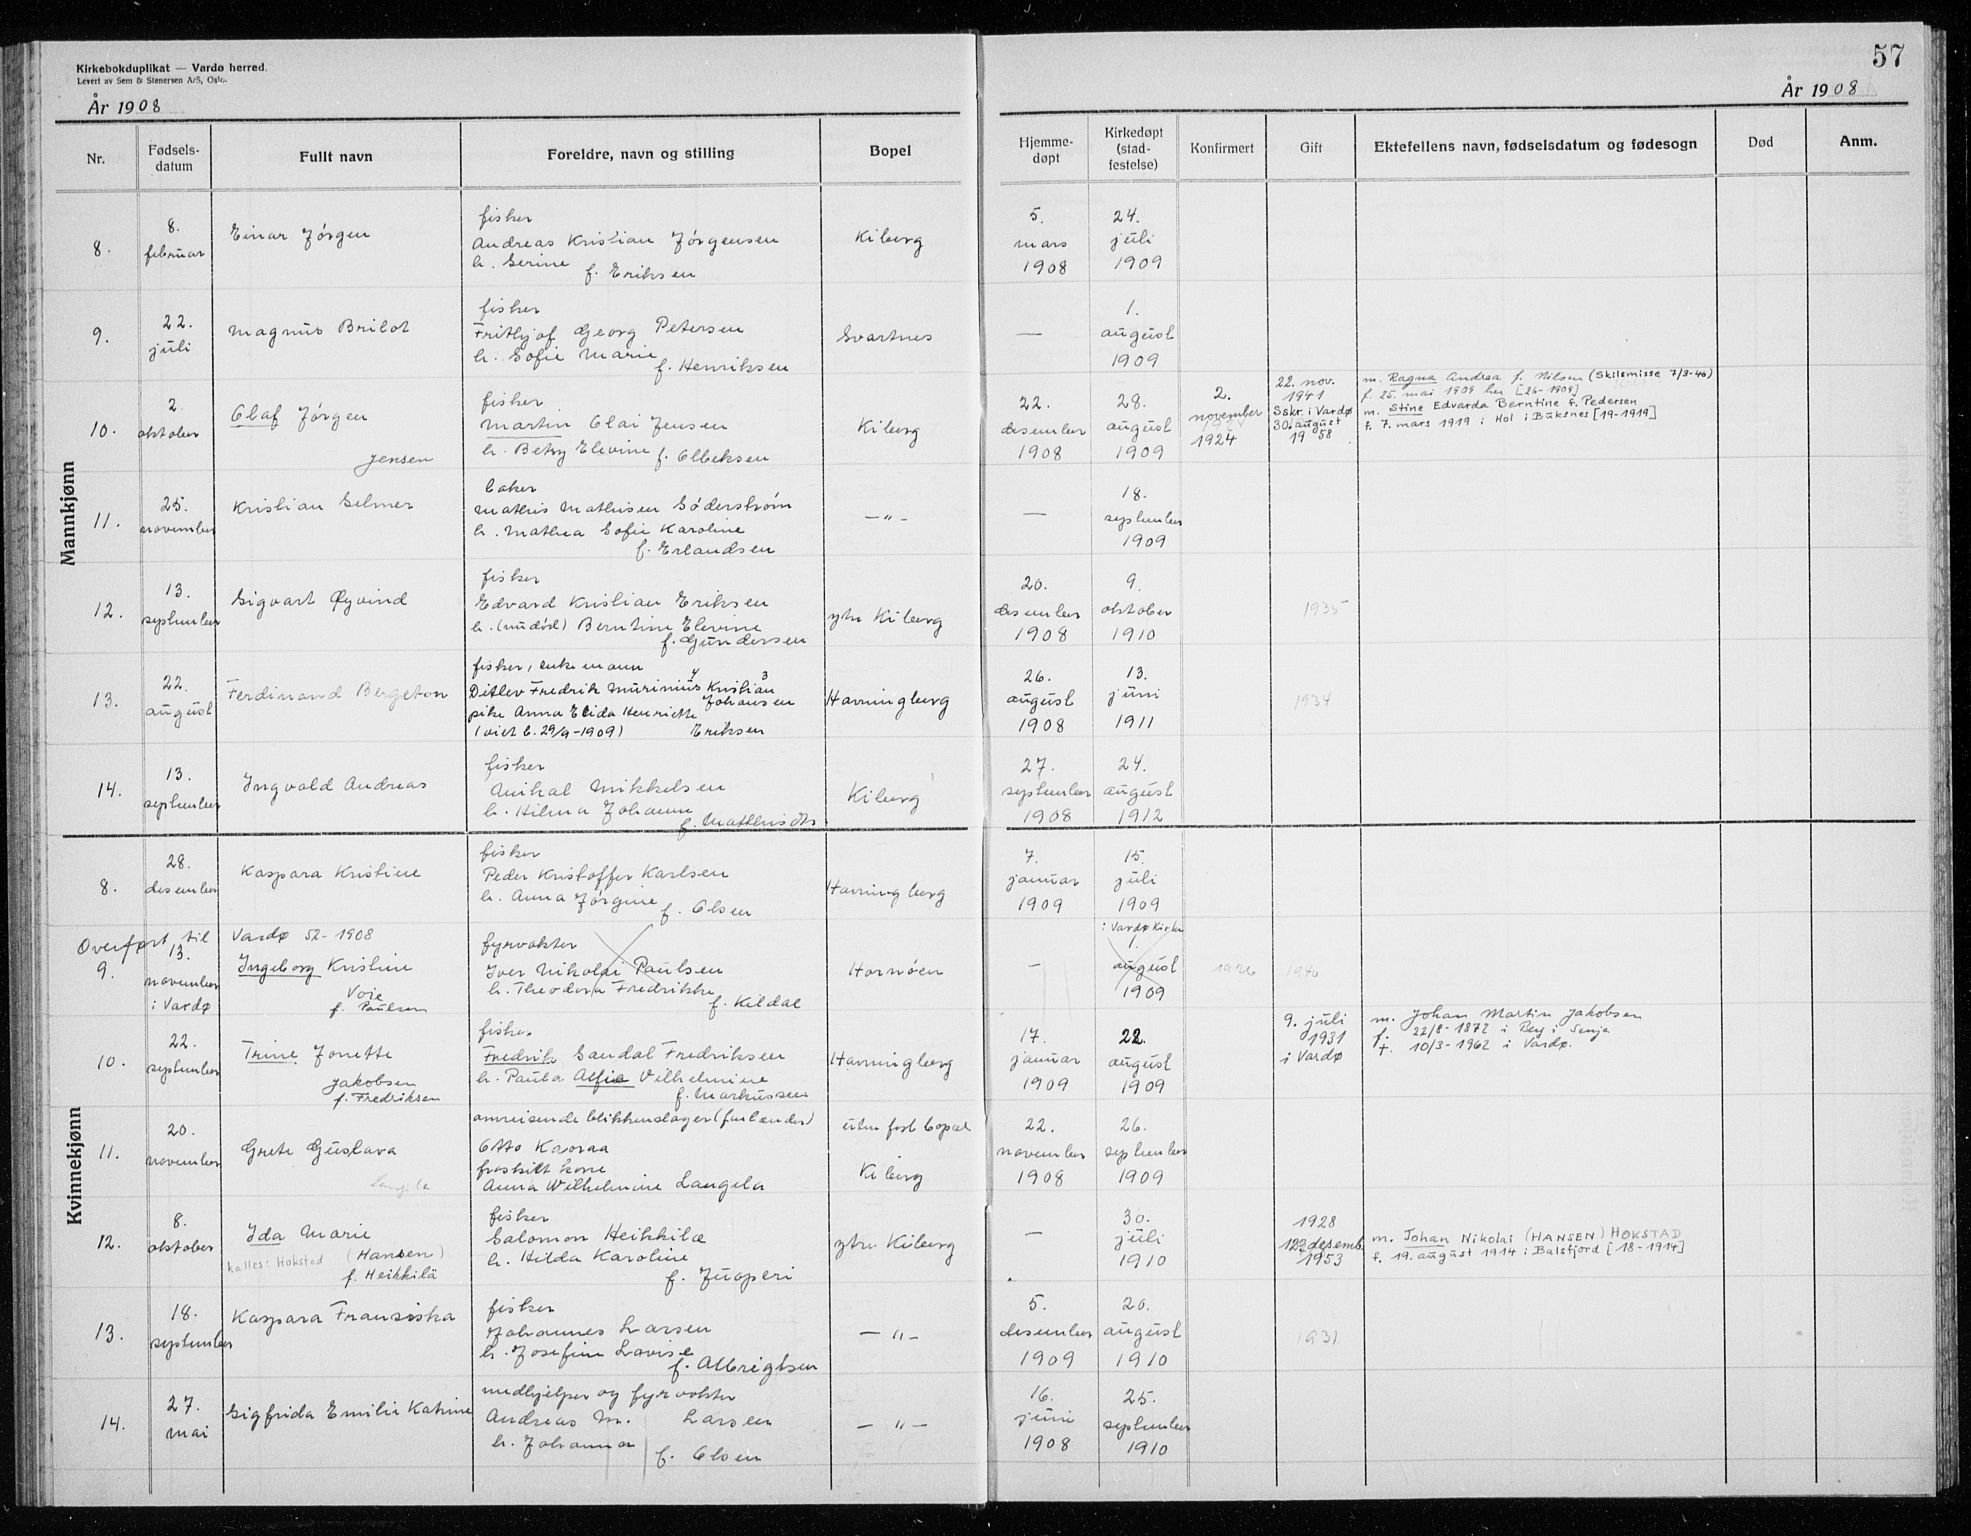 Kirkebokduplikat — Vardø herred.
Levert av Sem & Stenersen A/S, Oslo.
57
År 1908
År 1908
Nr.
Fødsels-
datum
Fullt navn
Foreldre, navn og stilling
Bopel
Hjemme-
døpt
Kirkedøpt
(stad-
festelse)
Konfirmert
Gift
Ektefellens navn, fødselsdatum og fødesogn
Død
Anm.
Mannkjønn
8.
8.
februar
Einar Jørgen
fisker
Andreas Kristian Jørgensen
h. Serine
f. Eriksen
Kiberg
5.
mars
1908
24.
juli
1909
9.
22.
juli
Magnus Brilot
fisker
Frithjof Georg Petersen
h. Sofie Marie
f. Henriksen
Svartnes
—
1.
august
1909
10.
2.
oktober
Olaf Jørgen
Jensen
fisker
Martin Olai Jensen
h. Betsy Elevine
f. Olbeksen
Kiberg
22.
desember
1908
28.
august
1909
2.
november
1924
22. nov.
1941
Sskr. i Vardø
30. august
1958
m. Ragna Andrea f. Nilsen (Skilsmisse 7/3-46)
f. 25. mai 1909 her [26-1909]
m. Stine Edvarda Berntine f. Pedersen
f. 7. mars 1919 i Hol i Buksnes [19-1919]
11.
25.
november
Kristian Selmer
baker
Mathis Mathisen Söderstrøm
h. Mathea Sofie Karoline
f. Erlandsen
—"-
—
18.
september
1909
12.
13.
september
Sigvart Øyvind
fisker
Edvard Kristian Eriksen
h. (nu død) Berntine Elevine
f. Gundersen
ytre Kiberg
20.
desember
1908
9.
oktober
1910
1935
13.
22.
august
Ferdinand Bergeton
fisker, enkemann
Ditlev Fredrik Murinius Kristian
Johansen
pike Anna Elida Henriette
(viet b. 29/9-1909) Eriksen
Havningberg
26.
august
1908
13.
juni
1911
1934
14.
13.
september
Ingvald Andreas
fisker
Mikal Mikkelsen
h. Hilma Johanne
Kiberg
27.
september
1908
24.
august
1912
Kvinnekjønn
8.
28.
desember
Kaspara Kristine
fisker
Peder Kristoffer Karlsen
h. Anna Jørgine
f. Olsen
Havningberg
7.
januar
1909
15.
juli
1909
Overført til Vardø 52-1908
9.
13.
november
i Vardø
Ingeborg Kristine
Voie
f. Paulsen
fyrvokter
Iver Nikolai Paulsen
h. Theodora Fredrikke
f. Kildal
Hornøen
-
i Vardø Kirke
1.
august
1909
1926
1946
10.
22.
september
Trine Jonette
Jakobsen
f. Fredriksen
fisker
Fredrik Sandal Fredriksen
h. Paula Alfie Vilhelmine
f. Markussen
Havningberg
17.
januar
1909
22.
august
1909
9. juli
1931
i Vardø
m. Johan Martin Jakobsen
f. 22/8-1872 i Berg i Senja
†. 10/3-1962 i Vardø.
11.
20.
november
Grete Gustava
Langela
omreisende blikkenslager (finlænder)
Otto Kaoraa
fraskilt kone
Anna Wilhelmine Langela
uten fast bopæl
Kiberg
22.
november
1908
26.
september
1909
12.
8.
oktober
Ida Marie
(Hansen)
kalles: Hokstad
f. Heikkilä
fisker
Salomon Heikkilæ
h. Hilda Karoline
f. Juoperi
ytre Kiberg
—
30.
juli
1910
1928
12. desemb.
1953
m. Johan Nikolai (HANSEN) HOKSTAD
f. 19. august 1914 i Balsfjord [18-1914]
13.
18.
september
Kaspara Fransiska
fisker
Johannes Larsen
h. Josefine Lovise
f. Albrigtsen
—"-
5.
desember
1909
20.
august
1910
1931
14.
27.
mai
Sigfrida Emilie Katrine
medhjelper og fyrvokter
Andreas M. Larsen
h. Johanna
f. Olsen
—"—
16.
juni
1908
25.
september
1910